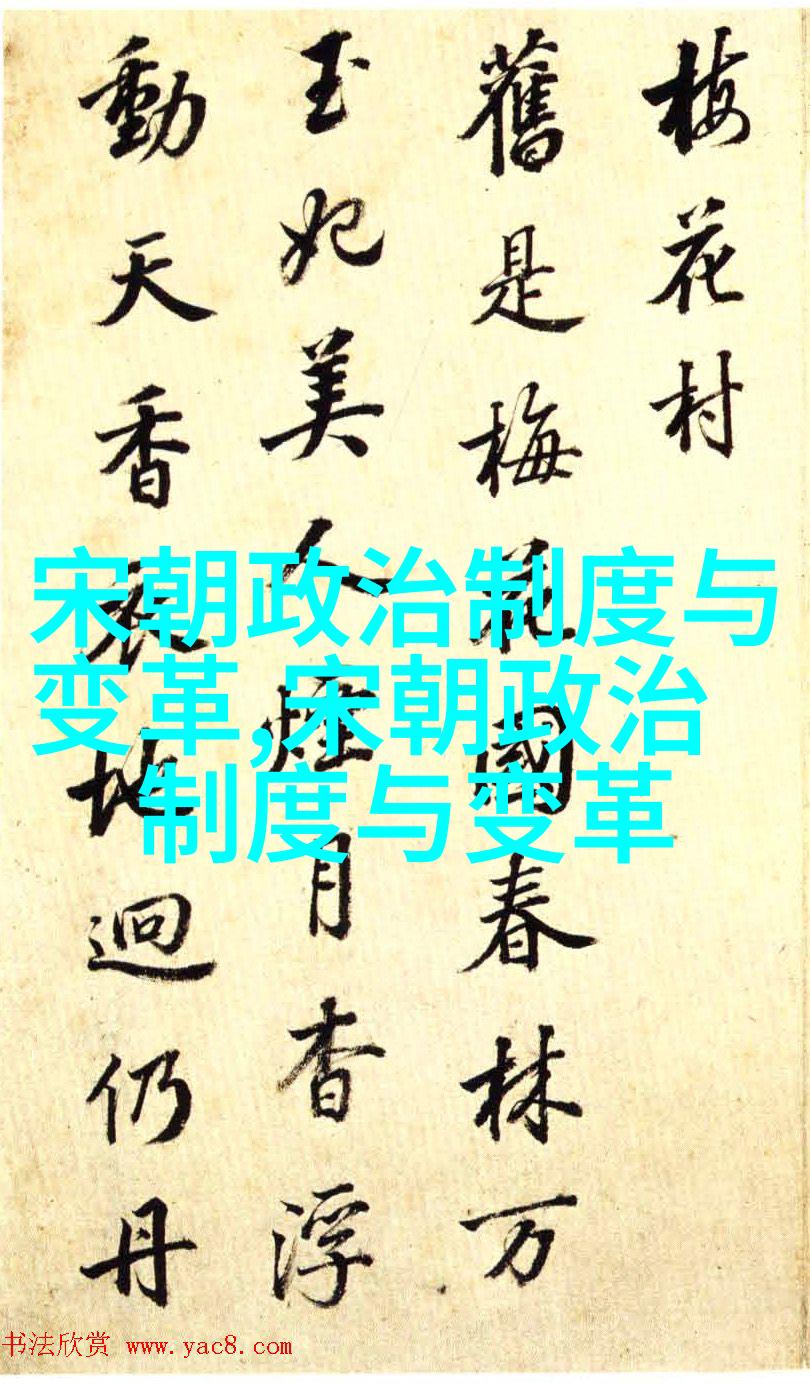 梅花村
舊是梅花國春林万
玉妃美人煙月杳浮
動天香地迥仍丹
宋朝政治制度与
变革,宋朝政治
制度与变革
书法欣赏 www.yac8.com